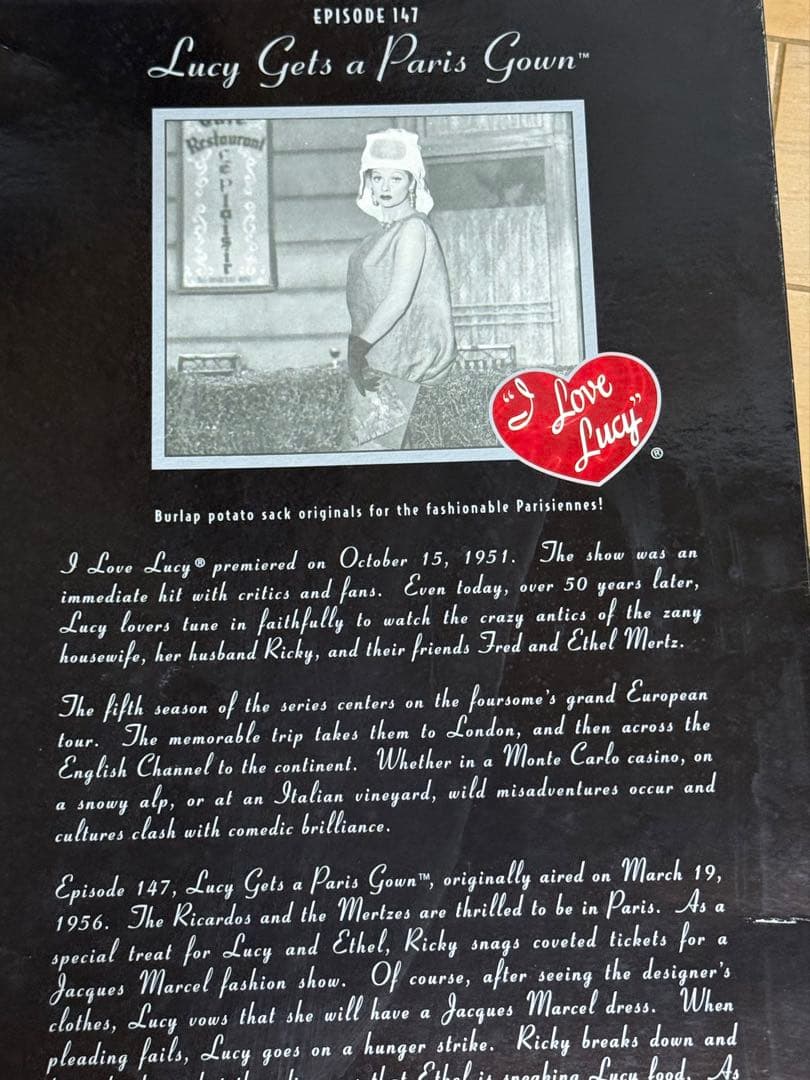 EPISODE 147
Lucy Gets a Paris Gown™
Restaurant
Le Plaisir
"I Love Lucy"®
Burlap potato sack originals for the fashionable Parisiennes!
I Love Lucy® premiered on October 15, 1951. The show was an
immediate hit with critics and fans. Even today, over 50 years later,
Lucy lovers tune in faithfully to watch the crazy antics of the zany
housewife, her husband Ricky, and their friends Fred and Ethel Mertz.
The fifth season of the series centers on the foursome's grand European
tour. The memorable trip takes them to London, and then across the
English Channel to the continent. Whether in a Monte Carlo casino, on
a snowy alp, or at an Italian vineyard, wild misadventures occur and
cultures clash with comedic brilliance.
Episode 147, Lucy Gets a Paris Gown™, originally aired on March 19,
1956. The Ricardos and the Mertzes are thrilled to be in Paris. As a
special treat for Lucy and Ethel, Ricky snags coveted tickets for a
Jacques Marcel fashion show. Of course, after seeing the designer's
clothes, Lucy vows that she will have a Jacques Marcel dress. When
pleading fails, Lucy goes on a hunger strike. Ricky breaks down and
that Ethel is sneaking Lucy food. As